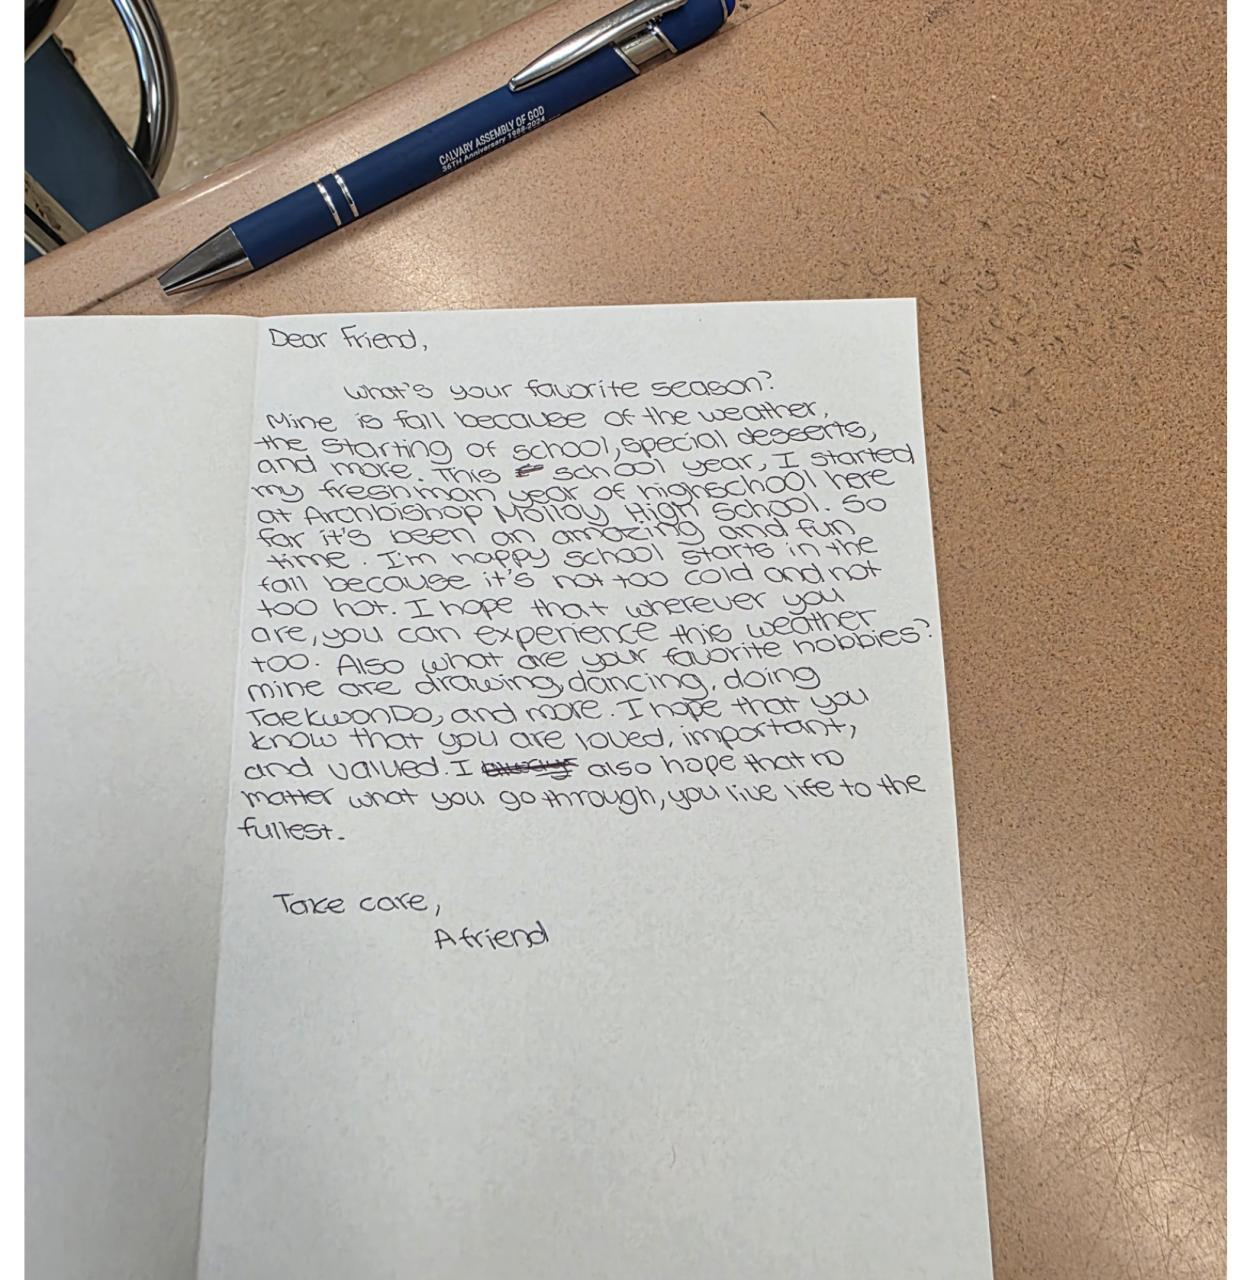 CALVARY ASSEMBLY OF GOD
36TH Anniversary 1988-2024
Dear Friend,
What's your favorite season?
Mine is fall because of the weather,
the starting of school, special deseerts,
and more. This school year, I started
my freshman year of highschool here
at Archbishop Molloy High School. So
far it's been an amazing and fun
time. I'm happy school starts in the
fall because it's not too cold and not
too hot. I hope that wherever you
are, you can experience this weather
too. Also what are your favorite hobbies?
mine are drawing, dancing, doing
TaekwonDo, and more. I hope that you
know that you are loved, important,
and valued. I also hope that no
matter what you go through, you live life to the
fullest.
Take care,
A friend